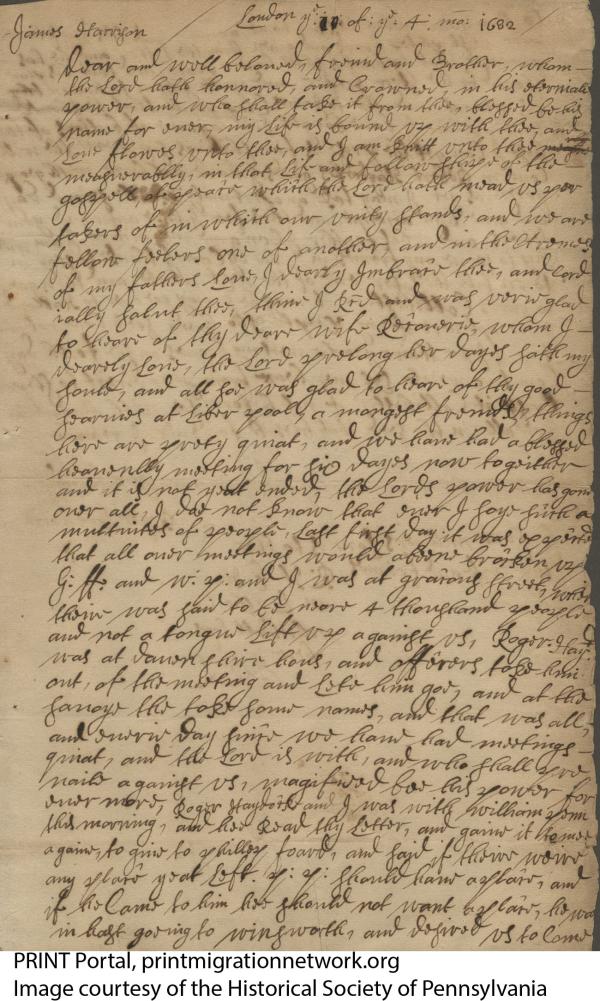 London ye: of: ye: 4: mo: 1682
James Harrison
Dear and well beloued, freind and Brother, whom
the Lord hath honnored, and Crowned, in his eterniale
power, and who shall take it from thee, blessed be his
name for ever, my Life is bound vp with thee, and
Loue flowes vnto thee, and I am knitt vnto thee
measuerably, in that Life and fellowshipe of the
gospell of peace which the Lord hath mead vs per
takers of in which our vnity stands, and we are
fellow feelers one of another, and in the
of my fathers Loue, I dearly Imbrace thee, and Cord
ially salut thee, thine I Red and was verie glad
to heare of thy deare wife Recouerie, whom I
dearely Loue, the Lord prelong her dayes saith my
soule, and all soe was glad to heare of thy good
searuies at Liber pooll, a mongest freinds, things
heire are prety quiat, and we haue had a blessed
heauenlly meeting for six dayes now togeither
and it is not yeat ended, the Lords power has gone
ouer all, I doe not know that euer I such a
multiutes of people, Last first day it was expected
that all ouer meetings would abeene brocken vp
G: ff: and w: p: and I was at gracious street, wher
theire was said to be neare 4 thousand people
and not a tongue Lift vp against vs, Roger Hay
was at dauenshire hous, and officers toke him
out, of the meeting and Lete him goe, and at the
sauoye the toke some names, and that was all,
and euerie day since we haue had meetings
quiat, and the Lord is with, and who shall pre
uaile against vs, magnified bee his power for
euer more, Roger Haydock and I was with william penn
this morning, and hee Read thy Letter, and gaue it to mee
againe, to giue to phillep foard, and said if theire weire
any place yeat Left. p: p: should haue a place, and
if he Came to him hee should not want a place, he was
in hast going to winsworth, and desired vs to Come
PRINT Portal, printmigrationnetwork.org
Image courtesy of the Historical Society of Pennsylvania